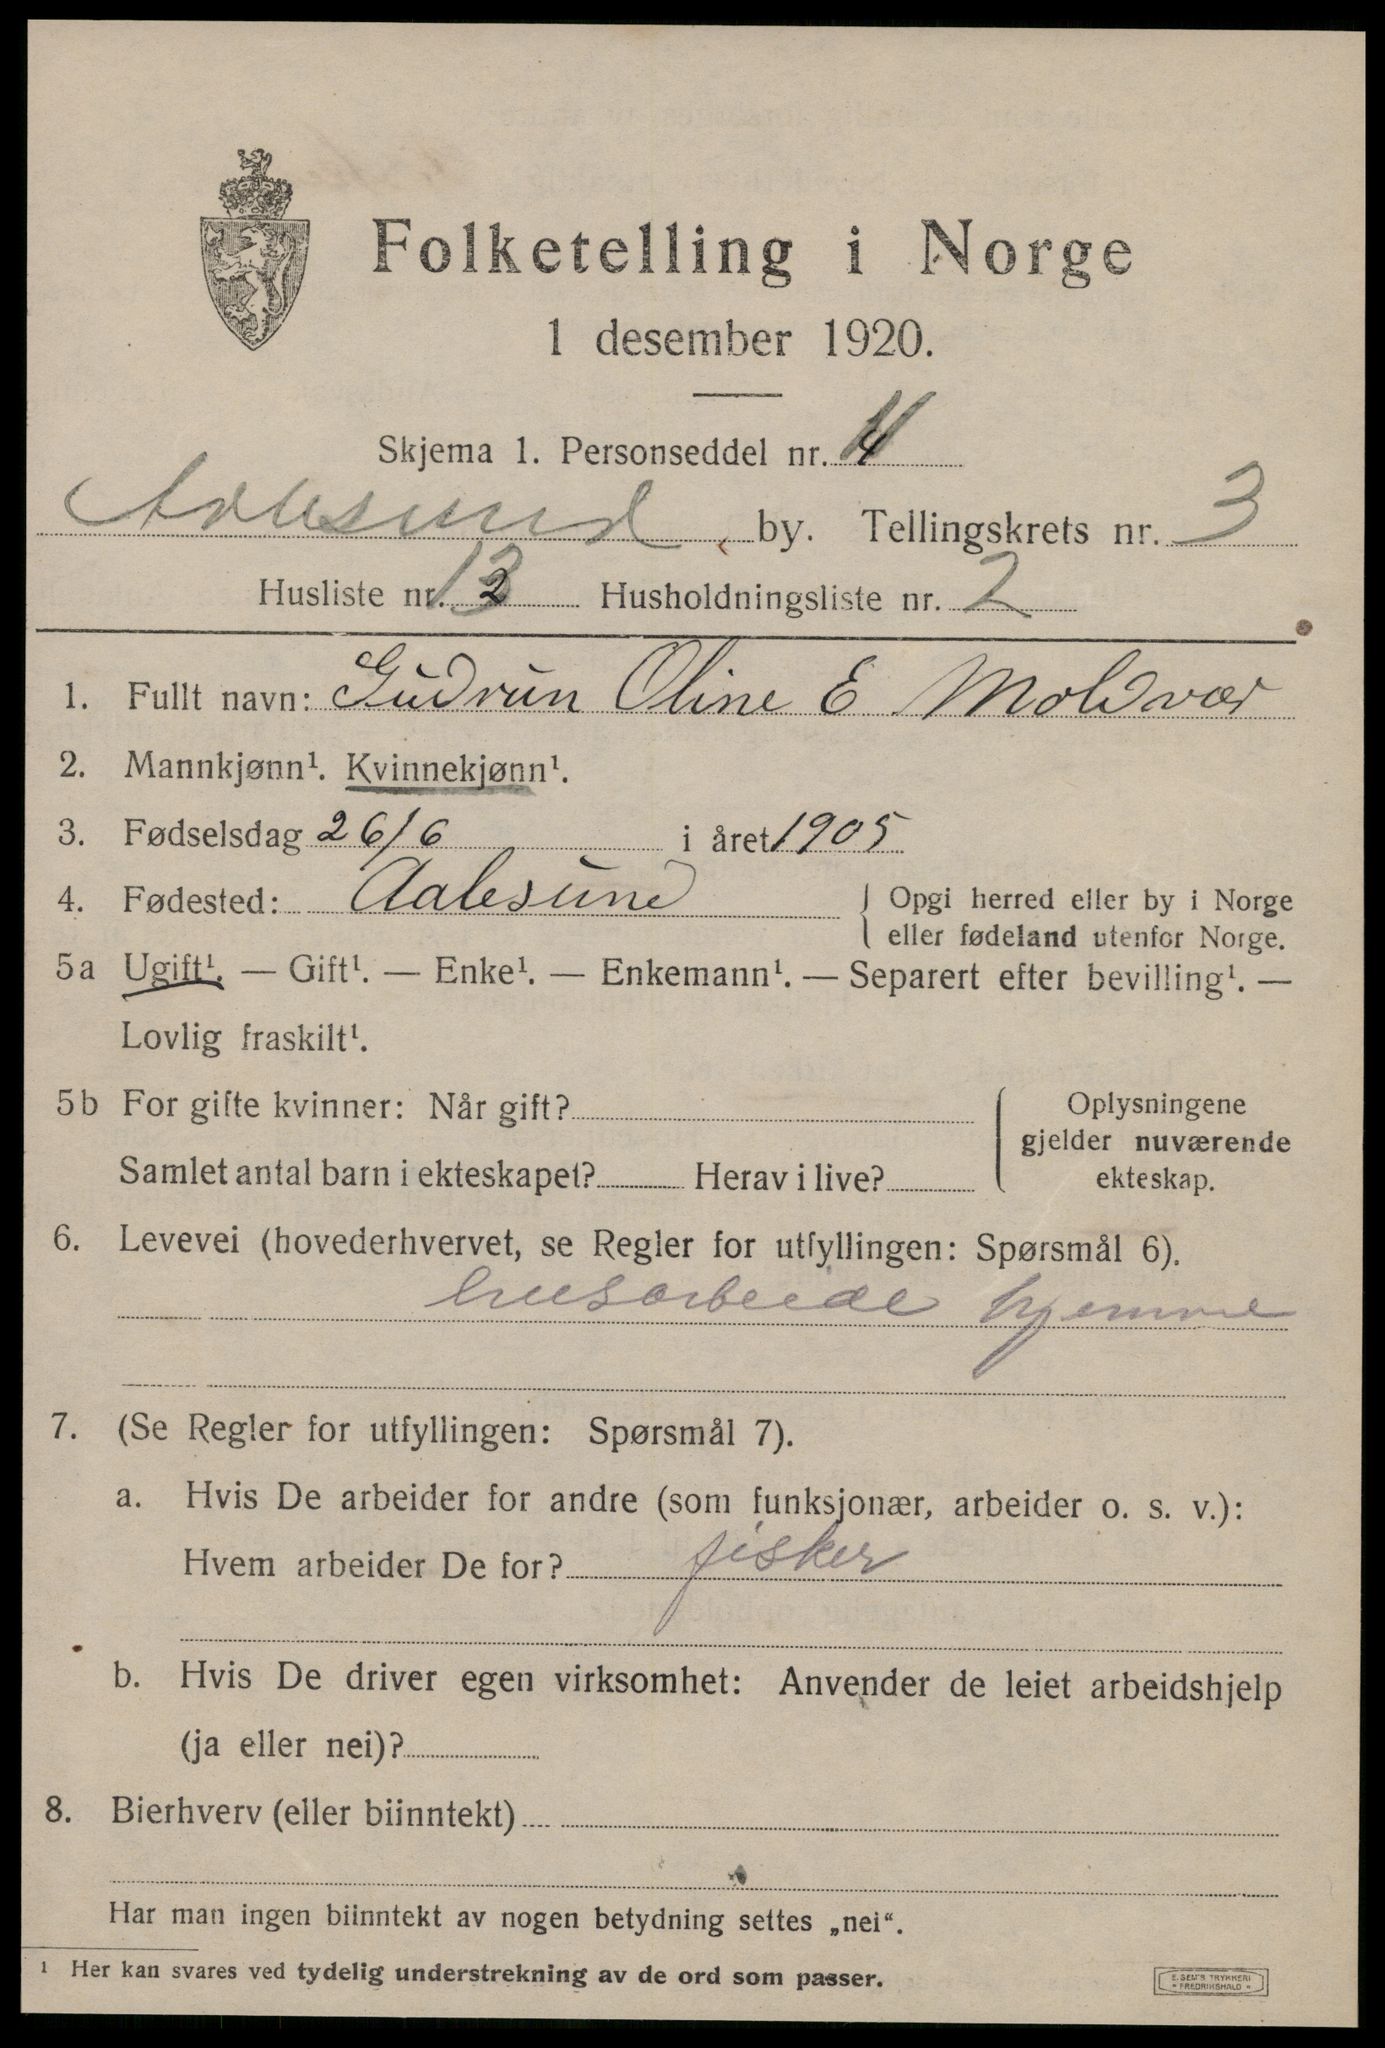 Folketelling i Norge
1 desember 1920.
Skjema 1. Personseddel nr. 4
Aalesund by. Tellingskrets nr. 3
Husliste nr. Husholdningsliste nr. 2
1. Fullt navn: Gudrun Oline E Moldvær
2. Mannkjønn¹. Kvinnekjønn¹.
3. Fødselsdag 26/6 i året 1905
4. Fødested: Aalesund { Opgi herred eller by i Norge
eller fødeland utenfor Norge.
5a Ugift¹. — Gift¹. — Enke¹. — Enkemann¹. — Separert efter bevilling¹. —
Lovlig fraskilt¹.
5b For gifte kvinner: Når gift?
Samlet antal barn i ekteskapet? Herav i live?
Oplysningene
gjelder nuværende
ekteskap.
6. Levevei (hovederhvervet, se Regler for utfyllingen: Spørsmål 6).
husarbeide hjemme
7. (Se Regler for utfyllingen: Spørsmål 7).
a. Hvis De arbeider for andre (som funksjonær, arbeider o. s. v.):
Hvem arbeider De for? fisker
b. Hvis De driver egen virksomhet: Anvender de leiet arbeidshjelp
(ja eller nei)?
8. Bierhverv (eller biinntekt)
Har man ingen biinntekt av nogen betydning settes „nei“.
¹ Her kan svares ved tydelig understrekning av de ord som passer.
E. SEM'S TRYKKERI
FREDRIKSHALD